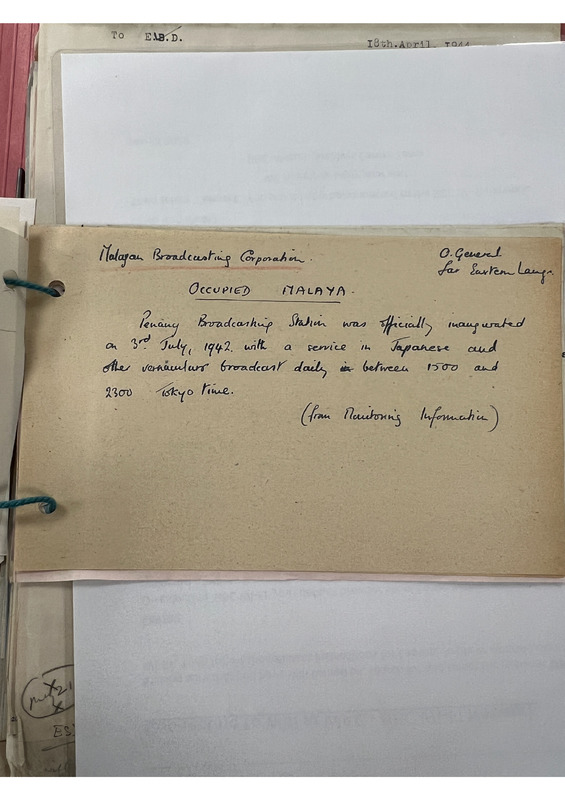 To E.B.D.
18th.April, 1944
Malayan Broadcasting Corporation.
O. General
Far Eastern Langs.
OCCUPIED MALAYA.
Penang Broadcasting Station was officially inaugurated
on 3rd July, 1942. with a service in Japanese and
other vernaculars broadcast daily between 1500 and
2300 Tokyo time.
(from Monitoring Information)